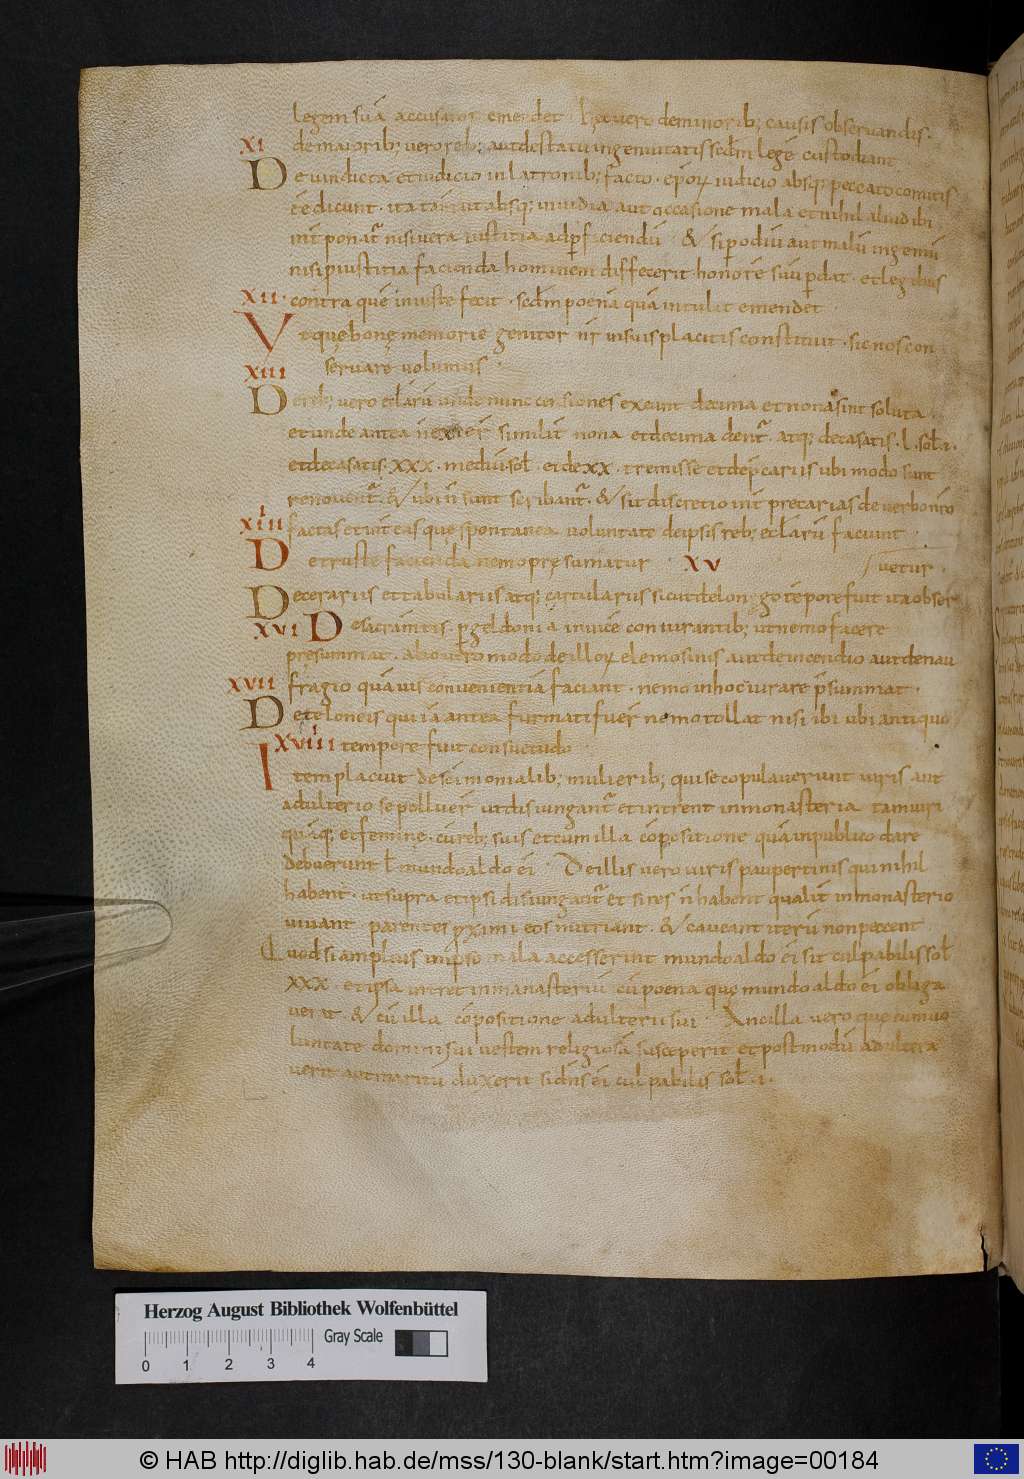 legem suā accusator emendet hęc vero deminorib; causis observandis.
demaiorib; vero reb; aut destatu ingenuitatis secdm legē custodiant
XI
De vindicta et iudicio in latronib; facto. eporꝝ iudicio absq; peccato comitis
eē dicunt. ita tam ut absq; invidia aut occasione mala et nihil aliud ibi
int ponat nisi vera iustitia ad pficiendū & si p odiū aut malū ingeniū
nisi p iustitia facienda hominem diffecerit honorē suū pdat. et legibus
XII. contra quē iniuste fecit. secdm poena quā intulit emendet
Vt quę bonę memorie genitor nr̄ in suis placitis constituit. sic nos con
servare volumus
XIII
De reb; vero ecclarū unde nunc censiones exeunt decima et nona sint soluta
et unde antea n̄ exier similit nona et decima dent. atq; de casatis. L. sol. i.
et de casatis. XXX. mediū sol. et de XX. tremisse et de pcariis ubi modo sunt
renovent. & ubi n̄ sunt scribant. & sit discretio int precarias de verbo nr̄o
XIIII factas et int eas que spontanea voluntate de ipsis reb; ecclarū faciunt
De truste facienda nemo pręsumat XV vetur.
De cerariis et tabulariis atq; cartulariis sicut de longo tēpore fuit ita obser
XVI De sacramtis p geldonia invicē coniurantib; ut nemo facere
presummat. alio vero modo de illorꝝ elemosinis aut de incendio aut de nau
XVII fragio quāvis convenientiā faciant. nemo in hoc iurare p̄summat.
De teloneis qui iā antea furmati fuer nemo tollat nisi ibi ubi antiquo
XVIIII tempore fuit consuetudo
Item placuit de scimonialib; mulierib; qui se copulaverunt viris aut
adulterio se polluer ut disiungant et intrent in monasteria tam viri
quāq; et femine. cū reb; suis et cum illa cōpositione quā in publico dare
debuerunt ł mundoaldo ei De illis vero viris paupertinis qui nihil
habent. ut supra et ipsi disiungant et si res n̄ habent qualit in monasterio
vivant parentes pximi eos nutriant. & caveant iterū non peccent
Quod si amplius in ipso mala accesserint mundoaldo ei sit culpabilis sol
XXX. et ipsa intret in manasteriū cū poena quę mundoaldo ei obliga
verat & cū illa cōpositione adulterii sui Ancilla vero que cum vo
luntate domini sui vestem religiosā susceperit et postmodū adultera
verit aut maritū duxerit sid ns ei culpabilis sol. i.
Herzog August Bibliothek Wolfenbüttel
Gray Scale
0 1 2 3 4
© HAB http://diglib.hab.de/mss/130-blank/start.htm?image=00184